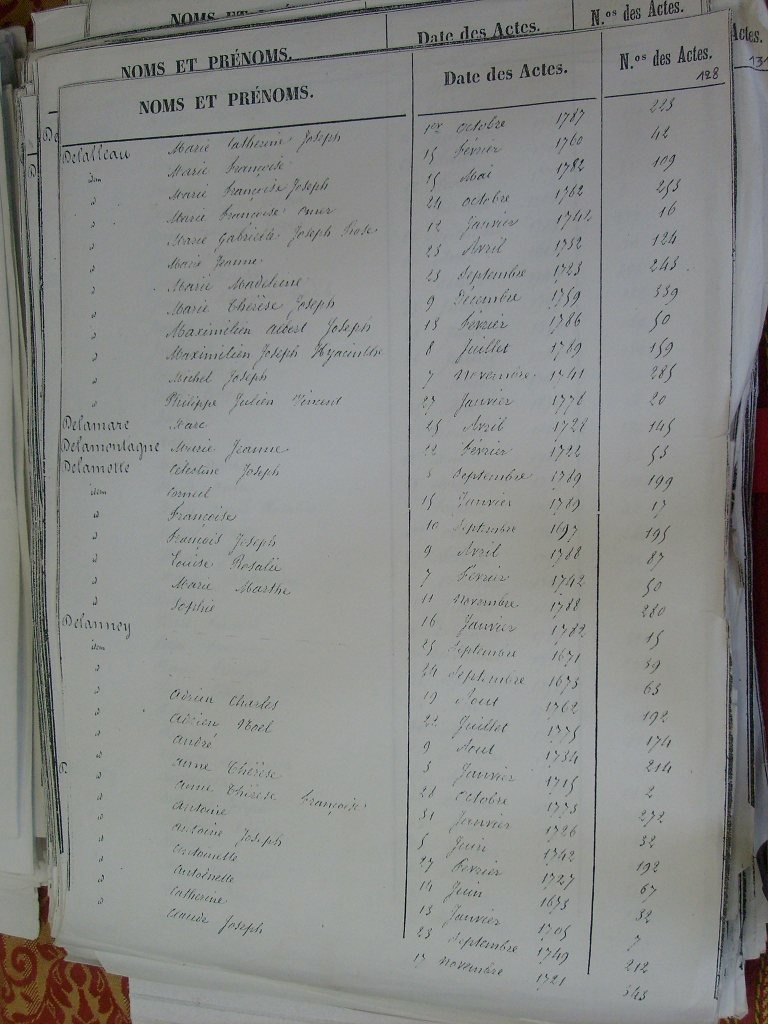 NOMS ET PRÉNOMS. Date des Actes. N.os des Actes.
NOMS ET PRÉNOMS. Date des Actes. N.os des Actes.
128
Delatteau Marie Catherine Joseph 1er octobre 1787 223
idem Marie Françoise 15 Février 1760 42
d Marie Françoise Joseph 15 Mai 1782 109
d Marie Françoise omer 24 octobre 1762 253
d Marie Gabrielle Joseph Rose 12 Janvier 1742 16
d Marie Jeanne 23 Avril 1752 124
d Marie Madeleine 23 Septembre 1723 243
d Marie Thérèse Joseph 9 Décembre 1759 339
d Maximilien albert Joseph 13 Février 1786 50
d Maximilien Joseph Hyacinthe 8 Juillet 1769 159
d Michel Joseph 7 novembre 1741 285
d Philippe Julien Vincent 27 Janvier 1776 20
Delamare Marc 25 Avril 1728 145
Delamontagne Marie Jeanne 22 Février 1722 53
Delamotte Célestine Joseph 5 Septembre 1769 199
idem Corneil 15 Janvier 1789 17
d Françoise 10 Septembre 1697 195
d François Joseph 9 Avril 1788 87
d Louise Rosalie 7 Février 1742 50
d Marie Marthe 11 novembre 1788 280
d Sophie 16 Janvier 1782 15
Delanney 25 Septembre 1671 39
idem 24 Septembre 1673 63
d 19 Aout 1762 192
d Adrien Charles 22 Juillet 1775 174
d Adrien Noel 9 Aout 1734 214
d André 3 Janvier 1715 2
d Anne Thérèse 28 octobre 1773 272
d Anne Thérèse Françoise 31 Janvier 1726 32
d Antoine 5 Juin 1742 192
d Antoine Joseph 27 Février 1727 67
d Antoinette 14 Juin 1673 32
d Antoinette 13 Janvier 1705 7
d Catherine 23 Septembre 1749 212
d Claude Joseph 17 novembre 1721 343